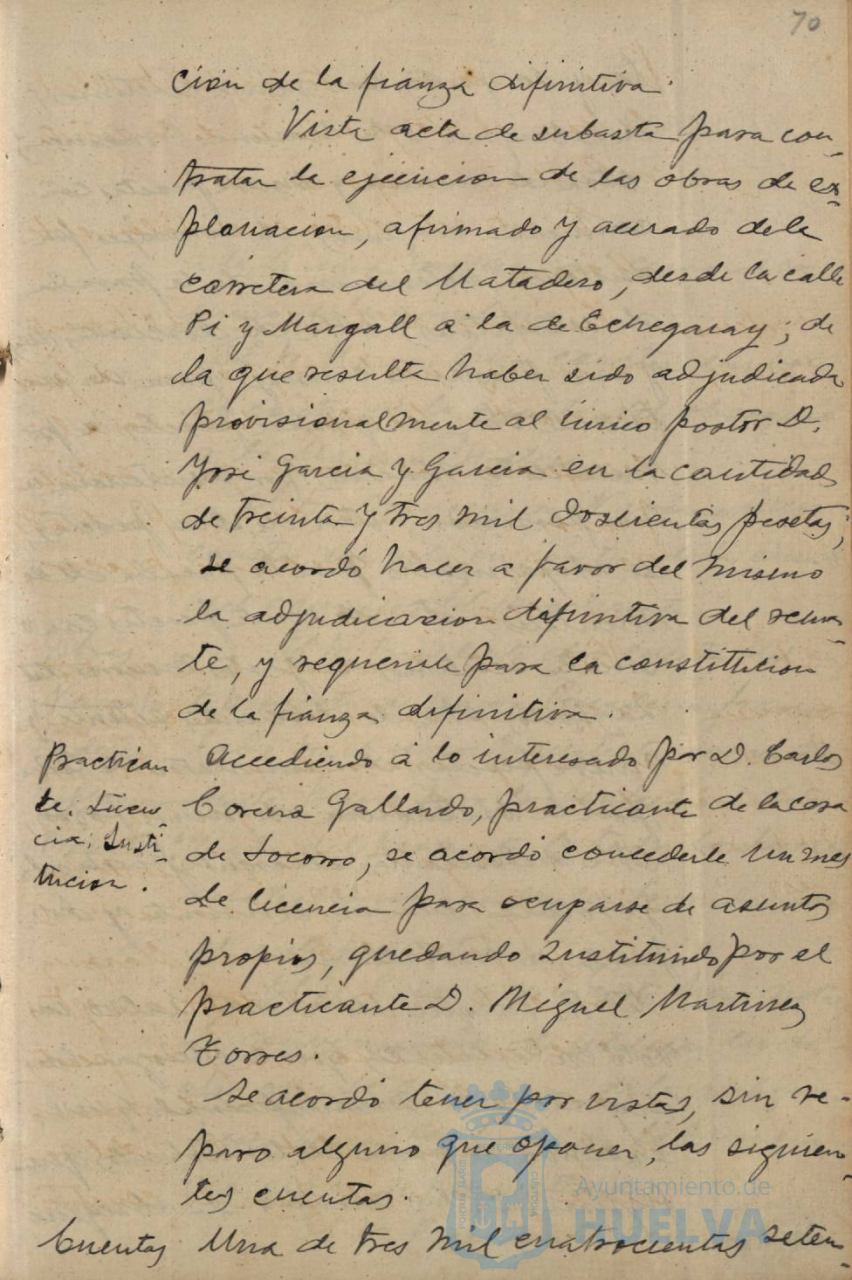 70
cion de la fianza difinitiva.
Vista acta de subasta para con-
tratar la ejecucion de las obras de ex-
planacion, afirmado y acerado de la
carretera del Matadero, desde la calle
Pi y Margall a la de Echegaray; de
la que resulta haber sido adjudicada
provisionalmente al único postor D.
José Garcia y Garcia en la cantidad
de treinta y tres mil doscientas pesetas;
se acordó hacer a favor del mismo
la adjudicacion difinitiva del rema-
te, y requerirle para la constitucion
de la fianza difinitiva.
Practican
te. Licen-
cia; Susti-
tucion.
Accediendo á lo interesado por D. Carlos
Gallardo, practicante de la casa
de Socorro, se acordó concederle un mes
de licencia para ocuparse de asuntos
propios, quedando sustituido por el
practicante D. Miguel Martinez
Torres.
Se acordó tener por vistas, sin re-
paro alguno que oponer, las siguien-
tes cuentas.
Cuentas
Una de tres mil cuatrocientas seten-
Ayuntamiento de
HUELVA